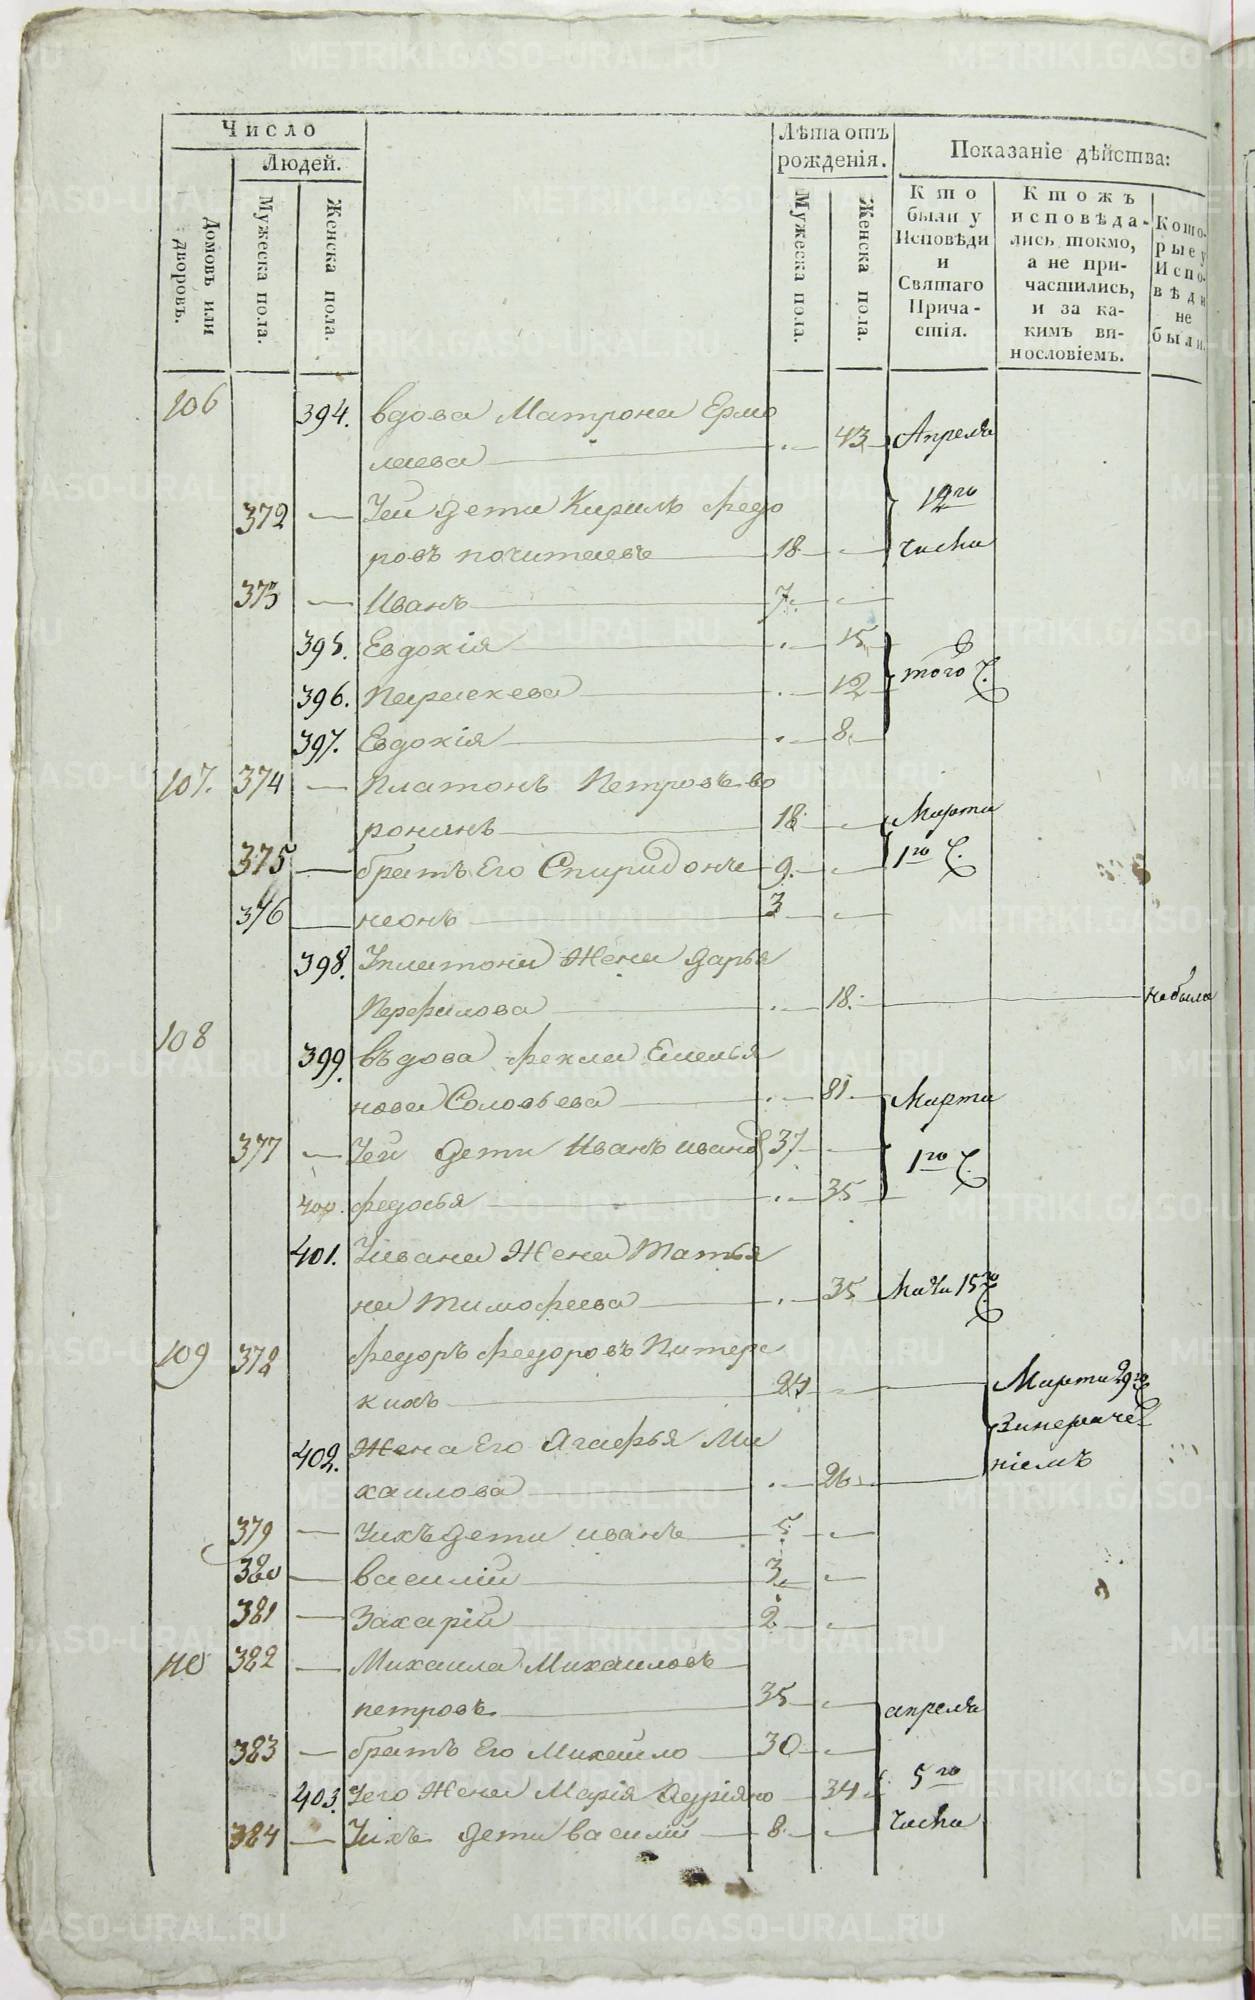 Число
Людей.
Домовъ или дворовъ.
Мужеска пола.
Женска пола.
Лѣта отъ рожденія.
Мужеска пола.
Женска пола.
Показаніе дѣйства:
Кто были у Исповѣди и Святаго Причастія.
Ктожъ исповѣдались токмо, а не причастились, и за какимъ винословіемъ.
Которые у Исповѣди не были.
106 394. вдова Матрона Ермо
лаева 43 Апреля
372 Уей дети Кирилъ Федо 12го
ровъ 18 числа
373 Иванъ 7.
395. Евдокія 15
396. Параскева 12 того Ч.
397. Евдокія 8.
107. 374 Платонъ Петровъ во
ронинъ 18 Марта
375 братъ Его Спиридонъ 9. 1го Ч.
376 3
398. Уплатона Жена дарья
Перфилова 18. небыла
108 399. въдова Фекла Емелья
нова Соловьева 81. Марта
377 Уей дети Иванъ ивановъ 37 1го Ч.
400. федосья 35
401. Уивана Жена Татья
на Тимофеева 35 15го Ч.
109 378 Федоръ Федоровъ Питерс
кихъ 24 Марта 29го Ч.
402. Жена Его Агафья Ми
хаилова 26
ніемъ
379 Уихъ дети иванъ 5.
380 василій 3
381 Захарій 2
110 382 Михаила Михаиловъ
петровъ 35 апреля
383 братъ Его Михаило 30
403. Уего Жена Марія Адріяно 34 5го
384 Уихъ дети василій 8 числа
METRIKI.GASO-URAL.RU